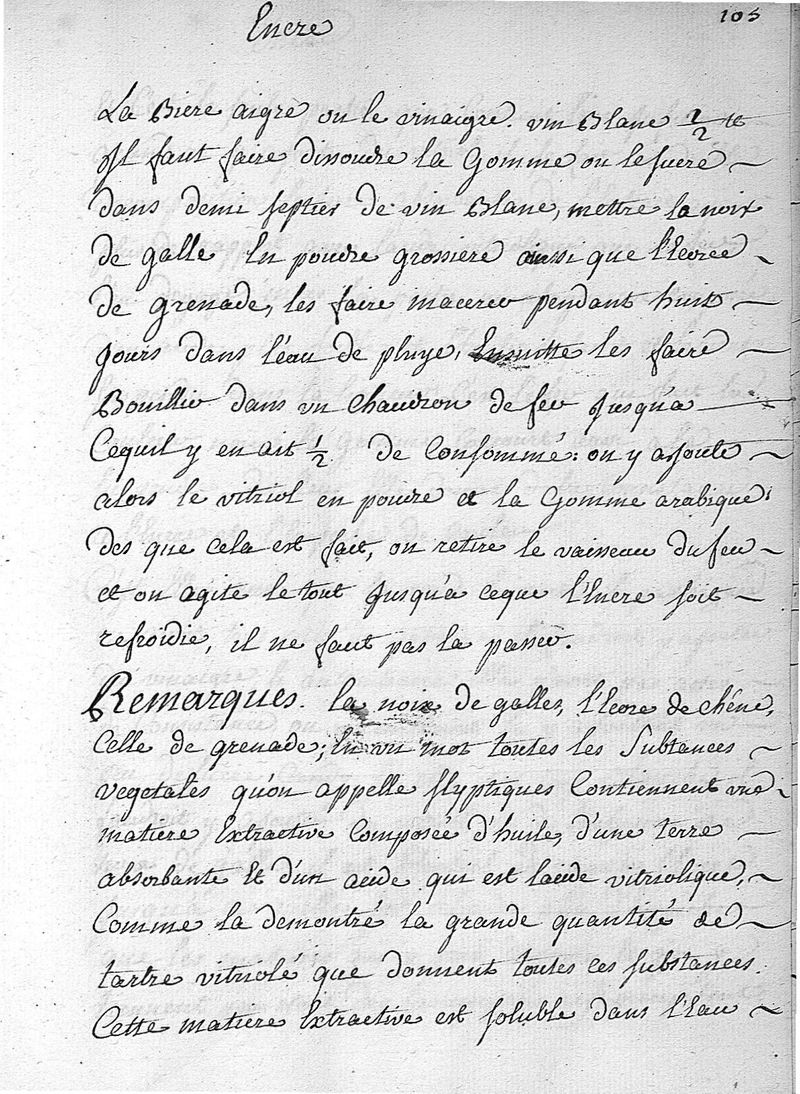 105
Encre
La Biere aigre ou le vinaigre. vin Blanc 1/2 lt
Il faut faire dissoudre la Gomme ou le sucre
dans demi septier de vin Blanc, mettre la noix
de galle En poudre grossiere ainsi que l'Ecorce
de grenade, les faire macerer pendant huit
jours dans l'éau de pluye, Ensuitte les faire
Bouillir dans un Chaudron de fer Jusqu'a
Cequil y en ait 1/2 de Consommé: on y ajoute
alors le vitriol en poudre et la Gomme arabique.
des que cela est fait, on retire le vaisseau du feu
et on agite le tout Jusqu'a ceque l'Encre soit
refroidie, il ne faut pas la passer.
Remarques. la noix de galles, l'Ecorce de chêne,
Celle de grenade; En un mot toutes les Subtances
vegetales qu'on appelle styptiques Contiennent une
matiere Extractive Composée d'huile, d'une terre
absorbante Et d'un acide qui est lacide vitriolique,
Comme la demontré la grande quantité de
tartre vitriolé que donnent toutes ces substances.
Cette matiere Extractive est soluble dans l'Eau